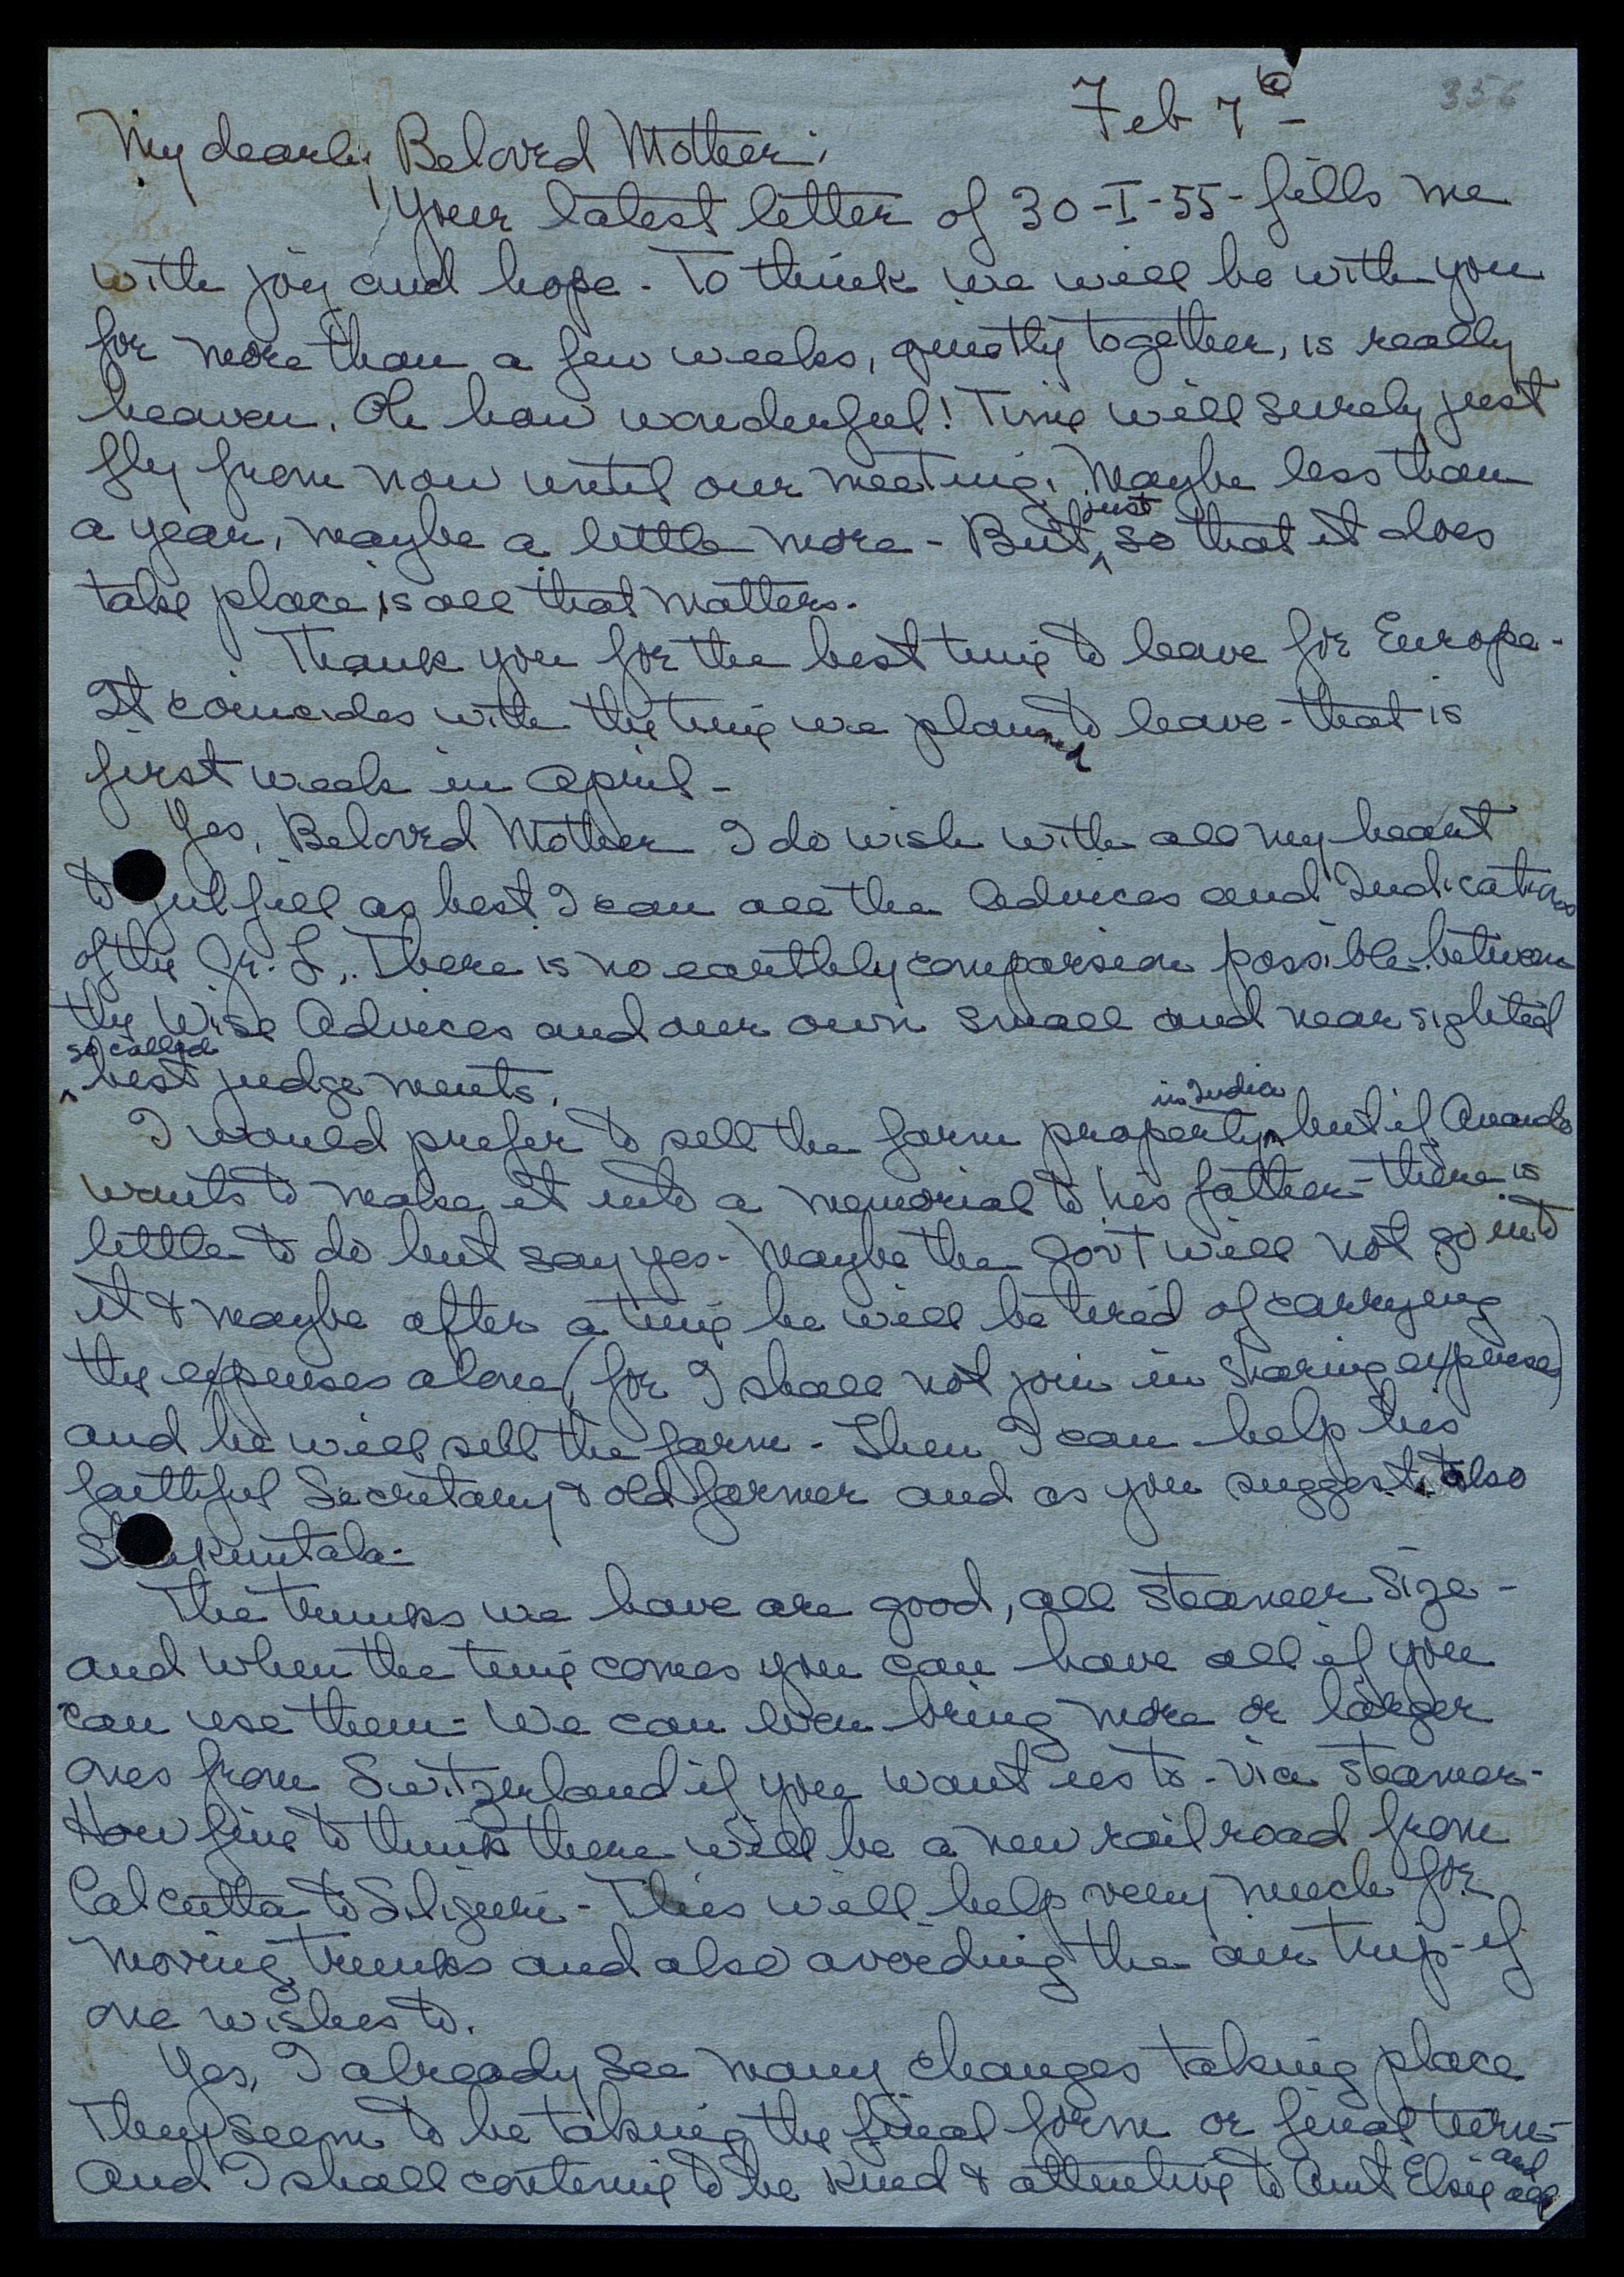 356
Feb 7th
My dearly Beloved Mother,
Your latest letter of 30-I-55- fills me
with joy and hope. To think we will be with you
for more than a few weeks, quietly together, is really
heaven. Oh how wonderful! Time will surely just
fly from now until our meeting. Maybe less than
a year, maybe a little more - But just so that it does
take place is all that matters.
Thank you for the best time to leave for Europe -
It coincides with the time we planned to leave - that is
first week in April -
Yes, Beloved Mother I do wish with all my heart
to fulfill as best I can all the Advices and Indications
of the Gr. L. There is no earthly comparsion possible between
the Wise Advices and our own small and near sighted
so called best judgements.
I would prefer to sell the farm property in India but if Ananda
wants to make it into a memorial to his father - there is
little to do but say yes - Maybe the Gov't will not go into
it & maybe after a time he will be tired of carrying
the expenses alone (for I shall not join in sharing expenses)
and he will sell the farm - Then I can help his
faithful Secretary & old farmer and as you suggest, also
Shakuntala -
The trunks we have are good, all steamer size -
and when the time comes you can have all if you
can use them - We can even bring more or larger
ones from Switzerland if you want us to - via steamer -
How fine to think there will be a new railroad from
Calcutta to Siliguri - This will help very much for
moving trunks and also avoiding the air trip - if
one wishes to.
Yes, I already see many changes taking place
They seem to be taking the final form or final turn -
And I shall continue to be kind & attentive to Aunt Elsie and all